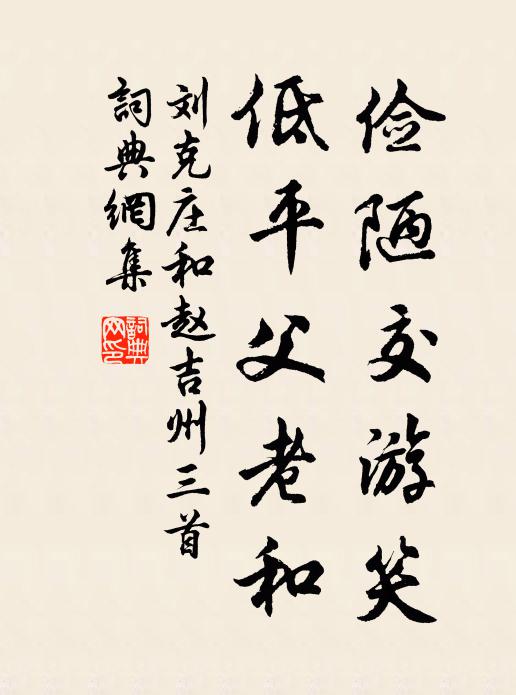 俭陋交游笑
低平父老和
刘克庄和赵吉州三首
詞典網集
詞典网印